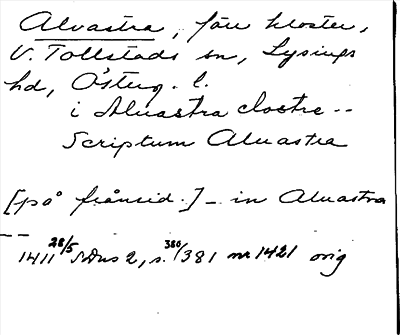 Alvastra, förr kloster,
V. Tollstads sn, Lysings
hd, Österg. l.
i Aluastra clostre --
Scriptum Aluastra
[på frånsid.] - in Aluastra
--
1411 28/5 SDns 2, s. 380/381 nr 1421 orig